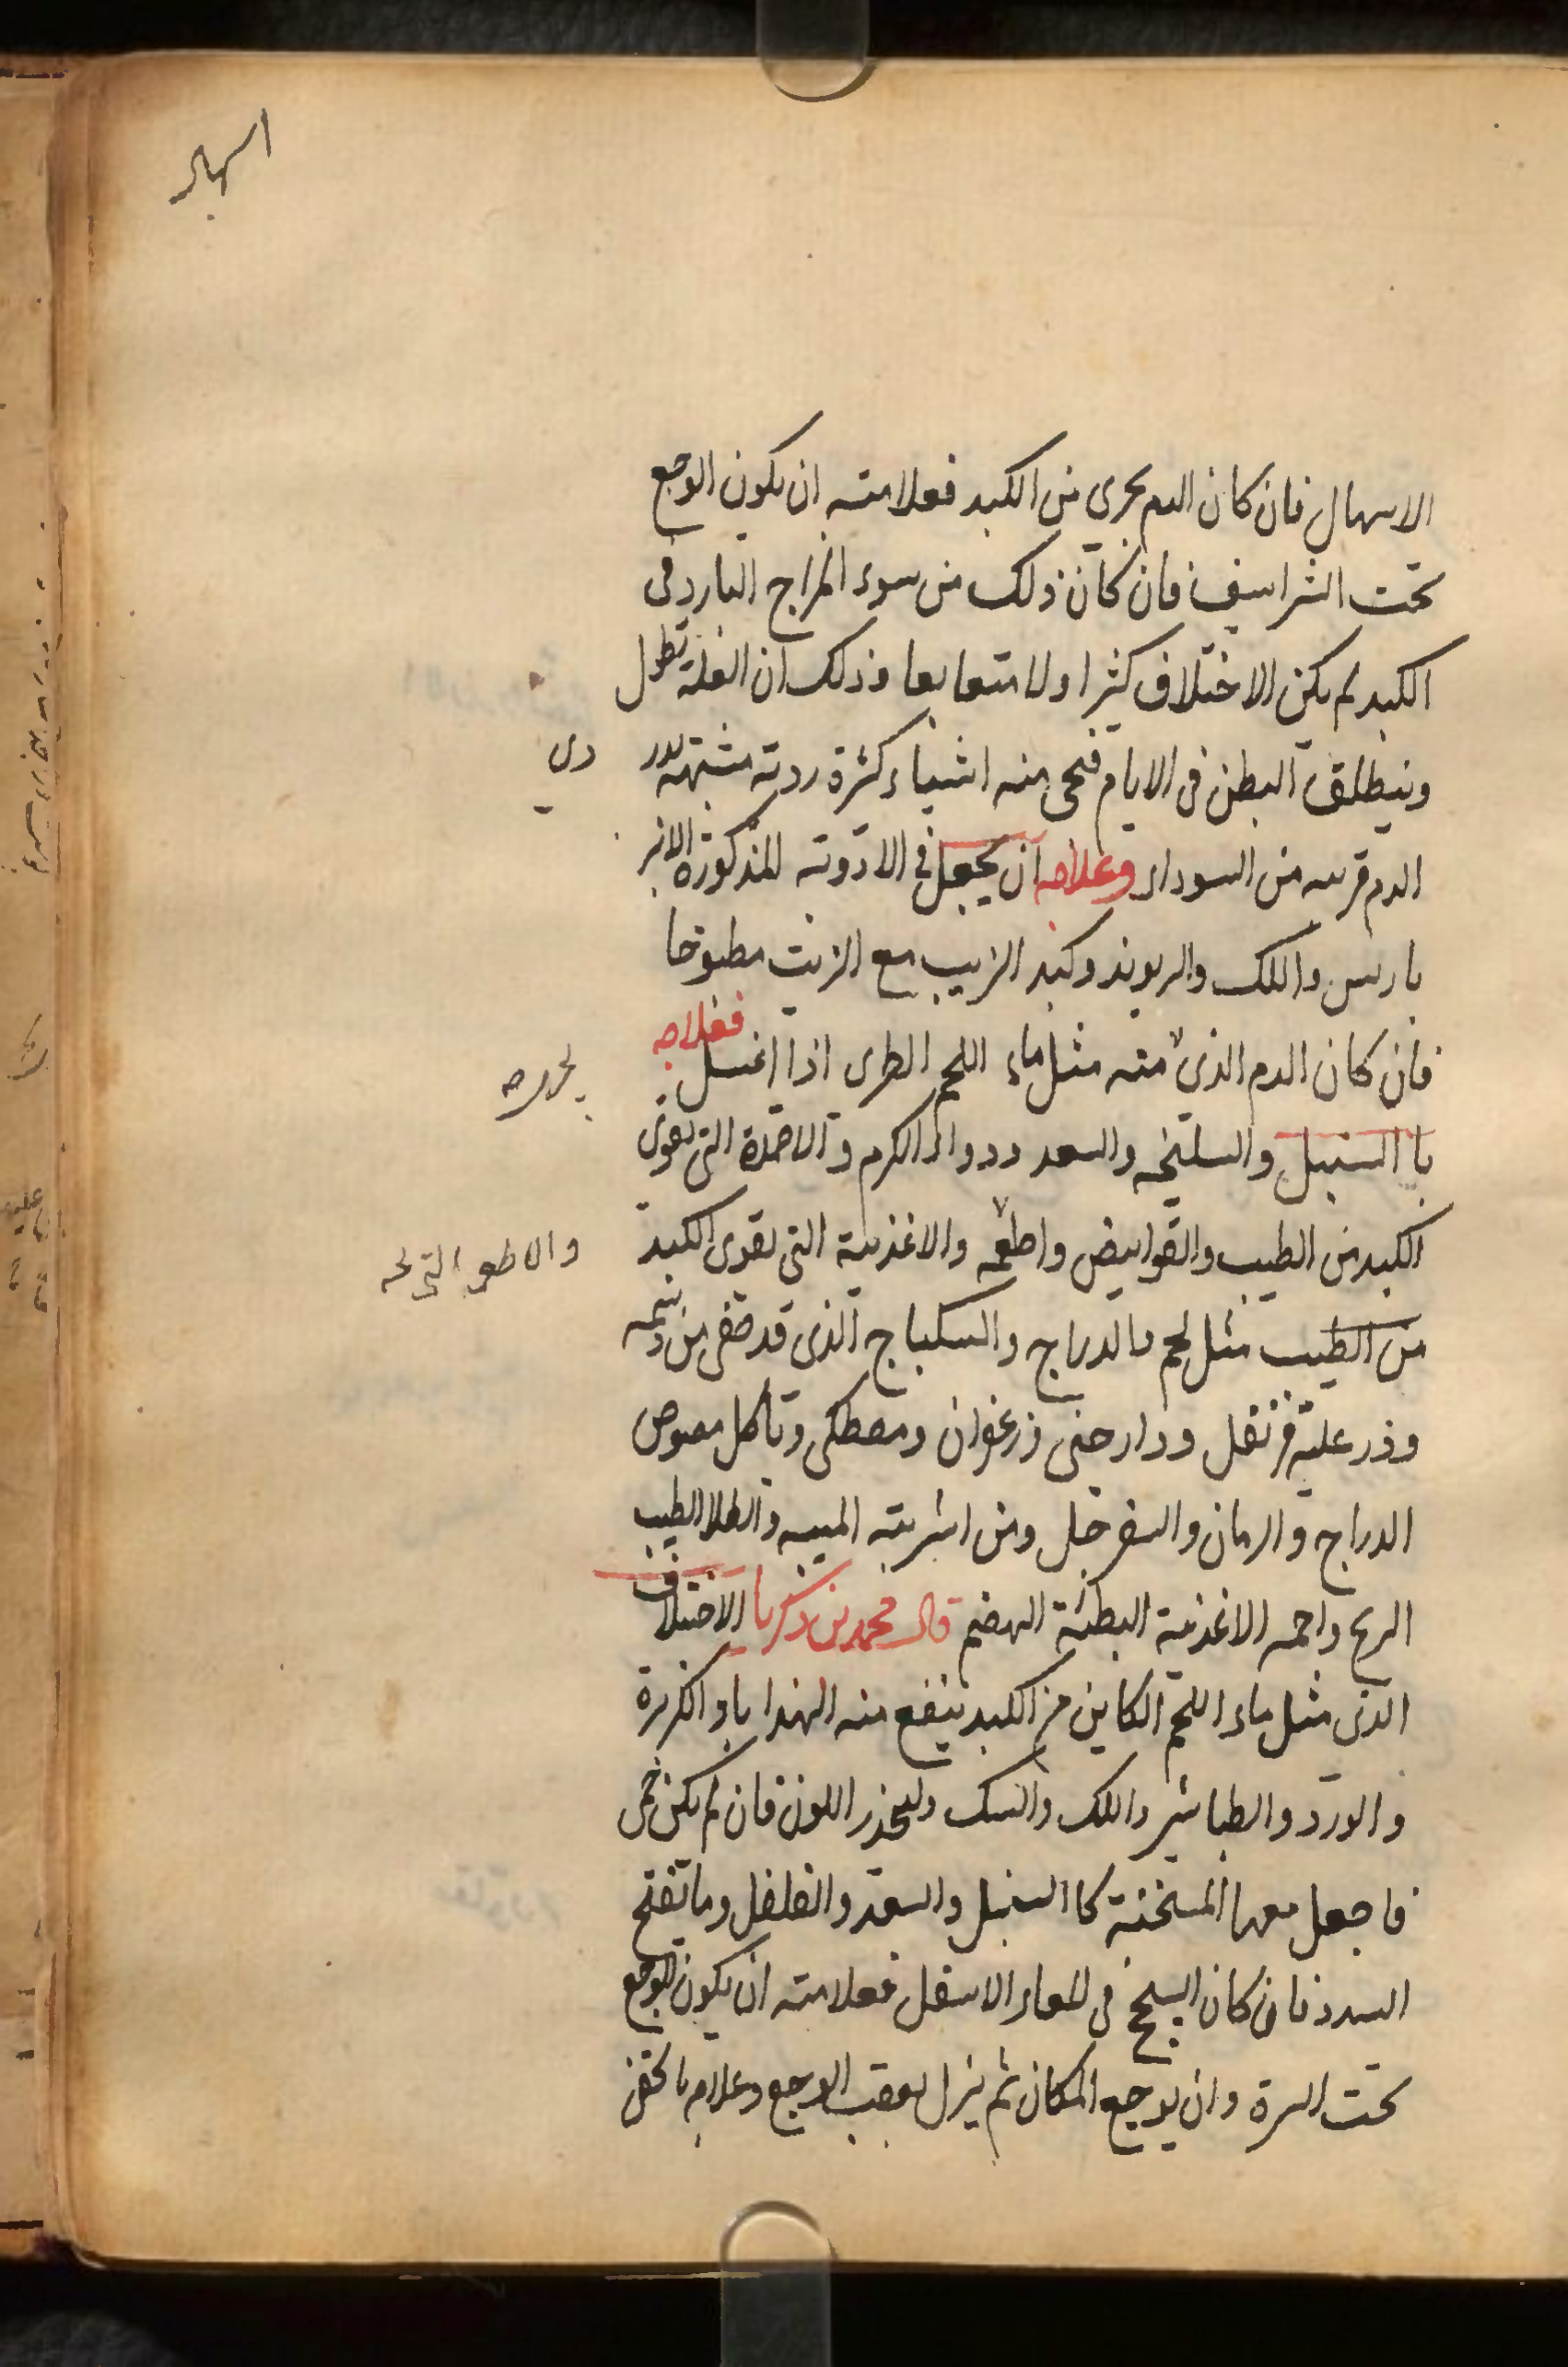 اسهال
الاسهال فان كان الدم يجري من الكبد فعلامته ان يكون الوجع
تحت الشراسيف فان كان ذلك من سوء المزاج البارد في
الكبد لم يكن الاختلاف كثيرا ولا متتابعا وذلك ان العلة تطول
وينطلق البطن في الايام فيجى منه اشياء كثيرة ردية مشبهة بدردى
الدم قريبه من السوداء وعلاجه ان يجعل في الادوية المذكورة الانبر
باريس واللك والريوند وكبد الذيب مع الزيت مطبوخا
فان كان الدم الذي منه مثل ماء اللحم الطرى اذا اغسل فعلاجه
با السنبل والسليخه والسعد ودواء الكرم والاضمدة التى تقوى
الكبد من الطيب والقوابض واطعمه والاغذية التى تقوى الكبد
من الطيب مثل لحم الدراج والسكباج الذى قد صفى من دسمه
وذر عليه قرنفل ودارصنى زعفران ومصطكى وتاكل مصوص
الدراج والرمان والسفرجل ومن اشربته الميبه والطلا الطيب
الريح واحمه الاغذية البطئة الهضم قال محمد بن زكريا الاختلاف
الذى مثل ماء اللحم الكاين من الكبد ينفع منه الهندا باو الكزبرة
والورد والطباشير واللك والسك وليحذر اللون فان لم يكن حمى
فاجعل معها المسخنة كا السنبل والسعد والفلفل وما تفتح
السدد فان كان السحج في المعاء الاسفل فعلامته ان يكون الوجع
تحت السرة وان يوجع المكان ثم ينزل بعقب الوجع وعلاجه بالحقن